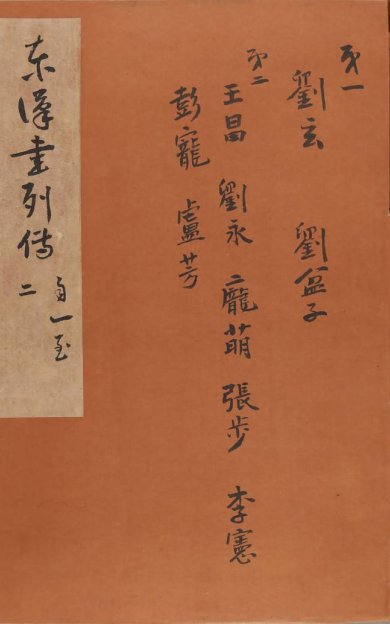 第一
劉玄 劉盆子
第二
王昌 劉永 龐萌 張步 李憲
彭寵 盧芳
东漢書列傳
自一至
二